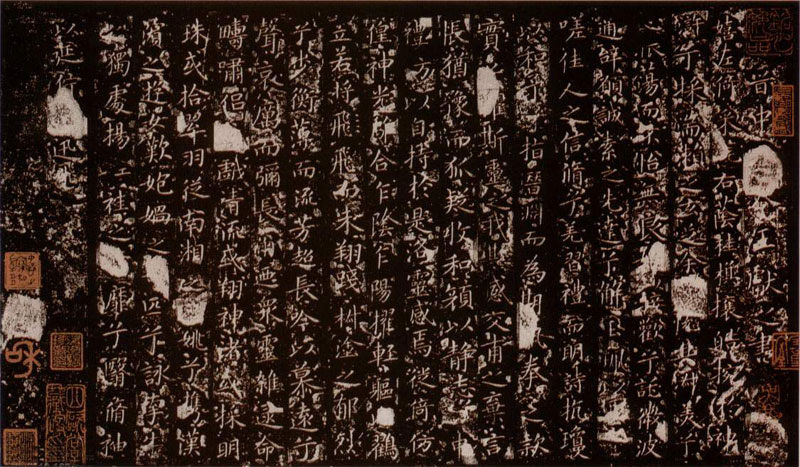 晉中王獻之書
左倚采右蔭桂旗攘皓捥於神
滸兮採湍瀨之玄芝余悅其淑美兮
心振蕩而不怡無良接歡兮託微波
通辭願誠素之先達兮解玉珮以
嗟佳人之信脩兮羌習禮而明詩抗瓊
以和予指潛淵而為期執拳之款
實懼斯靈之我欺感交甫之棄言
悵猶豫而狐疑收和顏以靜志兮申
禮防以自持於是洛靈感焉徙倚仿
偟神光離合乍陰乍陽擢輕軀以鶴
立若將飛而未翔踐椒塗之郁烈
兮步蘅薄而流芳超長吟以慕遠兮
聲哀厲而彌長爾乃眾靈雜遝命
疇嘯侶戲清流或翔神渚或採明
珠或拾翠羽從南湘之姚兮攜漢
濱之遊女歎匏媧之匹兮詠牽牛
之獨處揚輕袿之靡兮翳脩袖
以延佇迅飛